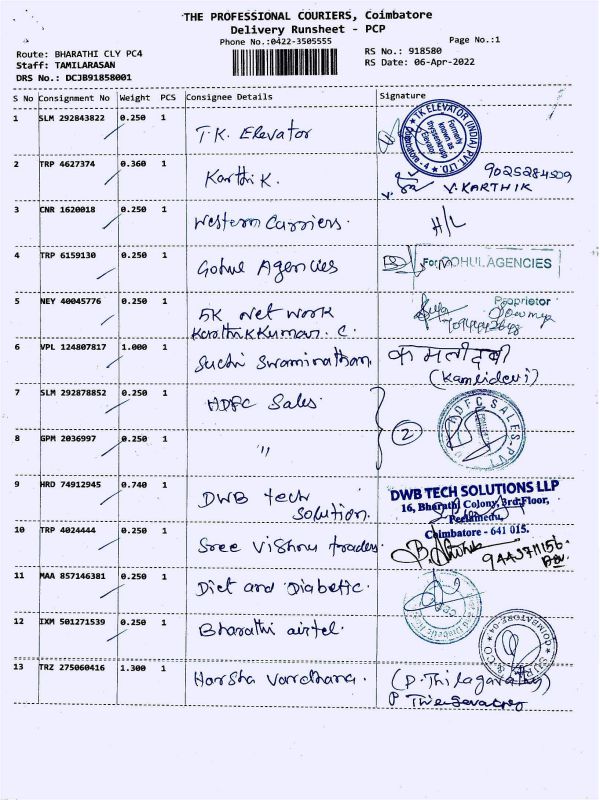 THE PROFESSIONAL COURIERS, Coimbatore
Delivery Runsheet - PCP
Phone No.:0422-3505555
Page No.:1
Route: BHARATHI CLY PC4
RS No.: 918580
Staff: TAMILARASAN
RS Date: 06-Apr-2022
DRS No.: DCJB91858001
S No Consignment No Weight PCS Consignee Details Signature
1 SLM 292843822 0.250 1 T.K. Elevator
TK ELEVATOR (INDIA) PVT. LTD.
Formerly known as thyssenkrupp Elevator
2 TRP 4627374 0.360 1 Karthi K. 9025284509
V. KARTHIK
3 CNR 1620018 0.250 1 Western Carriers. H/L
4 TRP 6159130 0.250 1 Gohul Agencies For GOHUL AGENCIES
Proprietor
5 NEY 40045776 0.250 1 5K Net work
Karthikkumar. C.
6 VPL 124807817 1.000 1 Suchi Swaminathan
(Kamlidevi)
7 SLM 292878852 0.250 1 HDFC Sales
HDFC SALES PVT
2
8 GPM 2036997 0.250 1 "
9 HRD 74912945 0.740 1 DWB tech
Solution.
DWB TECH SOLUTIONS LLP
16, Bharathi Colony, 3rd Floor,
Peelamedu,
Coimbatore - 641 015.
10 TRP 4024444 0.250 1 Sree Vishnu traders
11 MAA 857146381 0.250 1 Diet and Diabetic.
12 IXM 501271539 0.250 1 Bharathi airtel.
13 TRZ 275060416 1.300 1 Harsha Vardhana. (P. Thilagavathy)